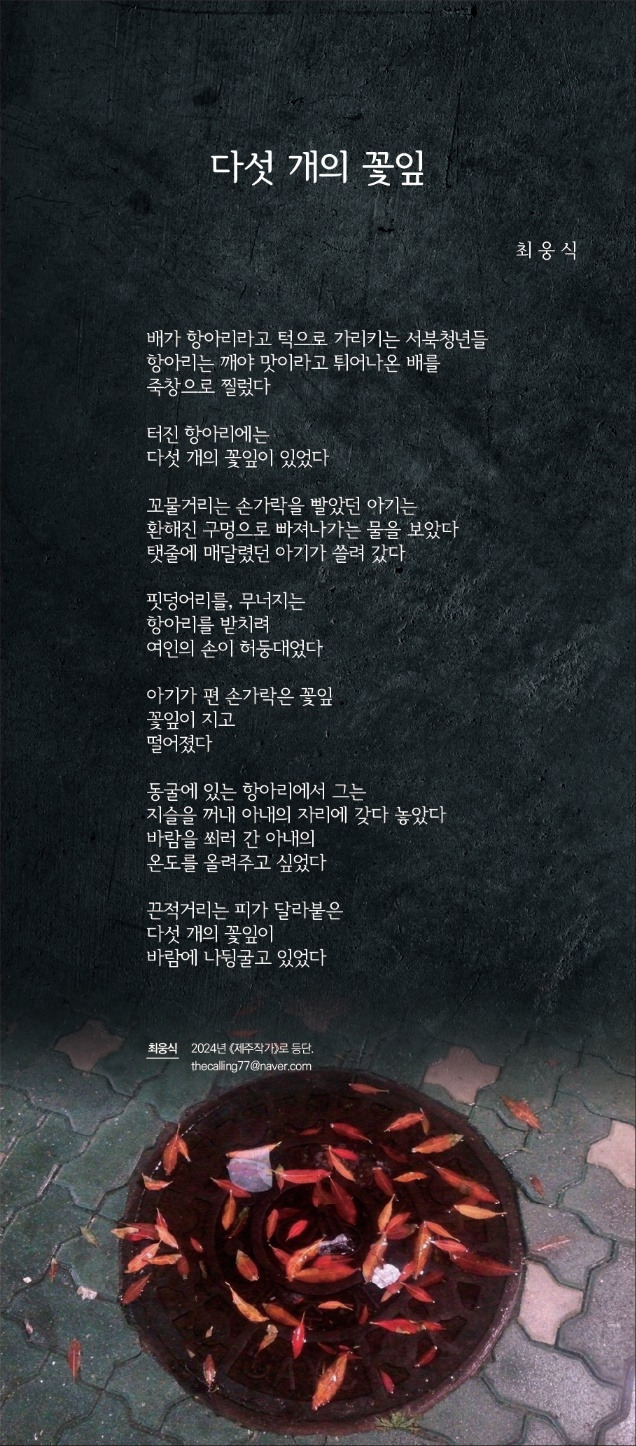 다섯 개의 꽃잎
최 웅 식
배가 항아리라고 턱으로 가리키는 서북청년들
항아리는 깨야 맛이라고 튀어나온 배를
죽창으로 찔렀다
터진 항아리에는
다섯 개의 꽃잎이 있었다
꼬물거리는 손가락을 빨았던 아기는
환해진 구멍으로 빠져나가는 물을 보았다
탯줄에 매달렸던 아기가 쓸려 갔다
핏덩어리를, 무너지는
항아리를 받치려
여인의 손이 허둥대었다
아기가 편 손가락은 꽃잎
꽃잎이 지고
떨어졌다
동굴에 있는 항아리에서 그는
지슬을 꺼내 아내의 자리에 갖다 놓았다
바람을 쐬러 간 아내의
온도를 올려주고 싶었다
끈적거리는 피가 달라붙은
다섯 개의 꽃잎이
바람에 나뒹굴고 있었다
최웅식 2024년 《제주작가》로 등단.
thecalling77@naver.com